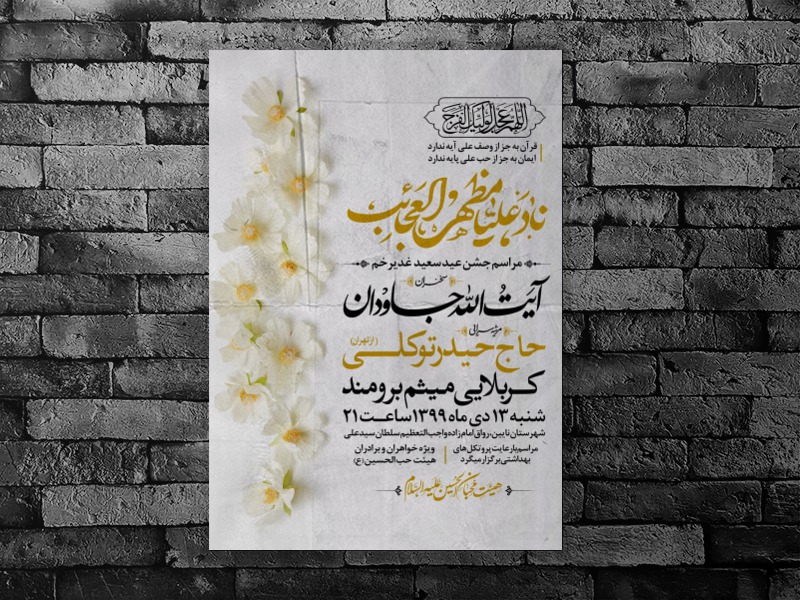 اللهم عجل لولیک الفرج
قرآن به جز از وصف علی آیه ندارد
ایمان به جز از حب علی پایه ندارد
ناد علیا مظهر العجائب
مراسم جشن عید سعید غدیر خم
سخنران
آیت الله جاودان
مرثیه سرایی
حاج حیدر توکلی (از تهران)
کربلایی میثم برومند
شنبه ۱۳ دی ماه ۱۳۹۹ ساعت ۲۱
شهرستان نایین، رواق امام زاده واجب التعظیم سلطان سید علی
مراسم با رعایت پروتکل های
بهداشتی برگزار میگرد
ویژه خواهران و برادران
هیئت حب الحسین (ع)
هیئت محبان الحسین علیه السلام